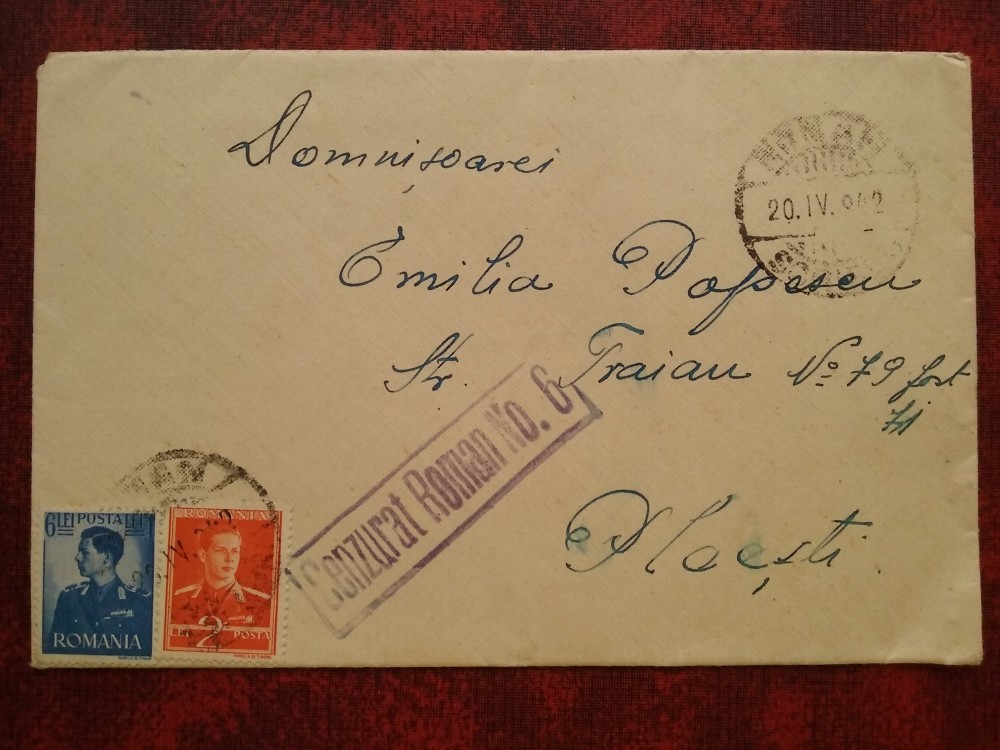 Domnișoarei
20.IV.942
Emilia Popescu
Str. Traian No 79 fost
71
Cenzurat Roman No. 6
Ploești.
6 LEI POSTA LEI
ROMANIA
ROMANIA
LEI 2 POSTA